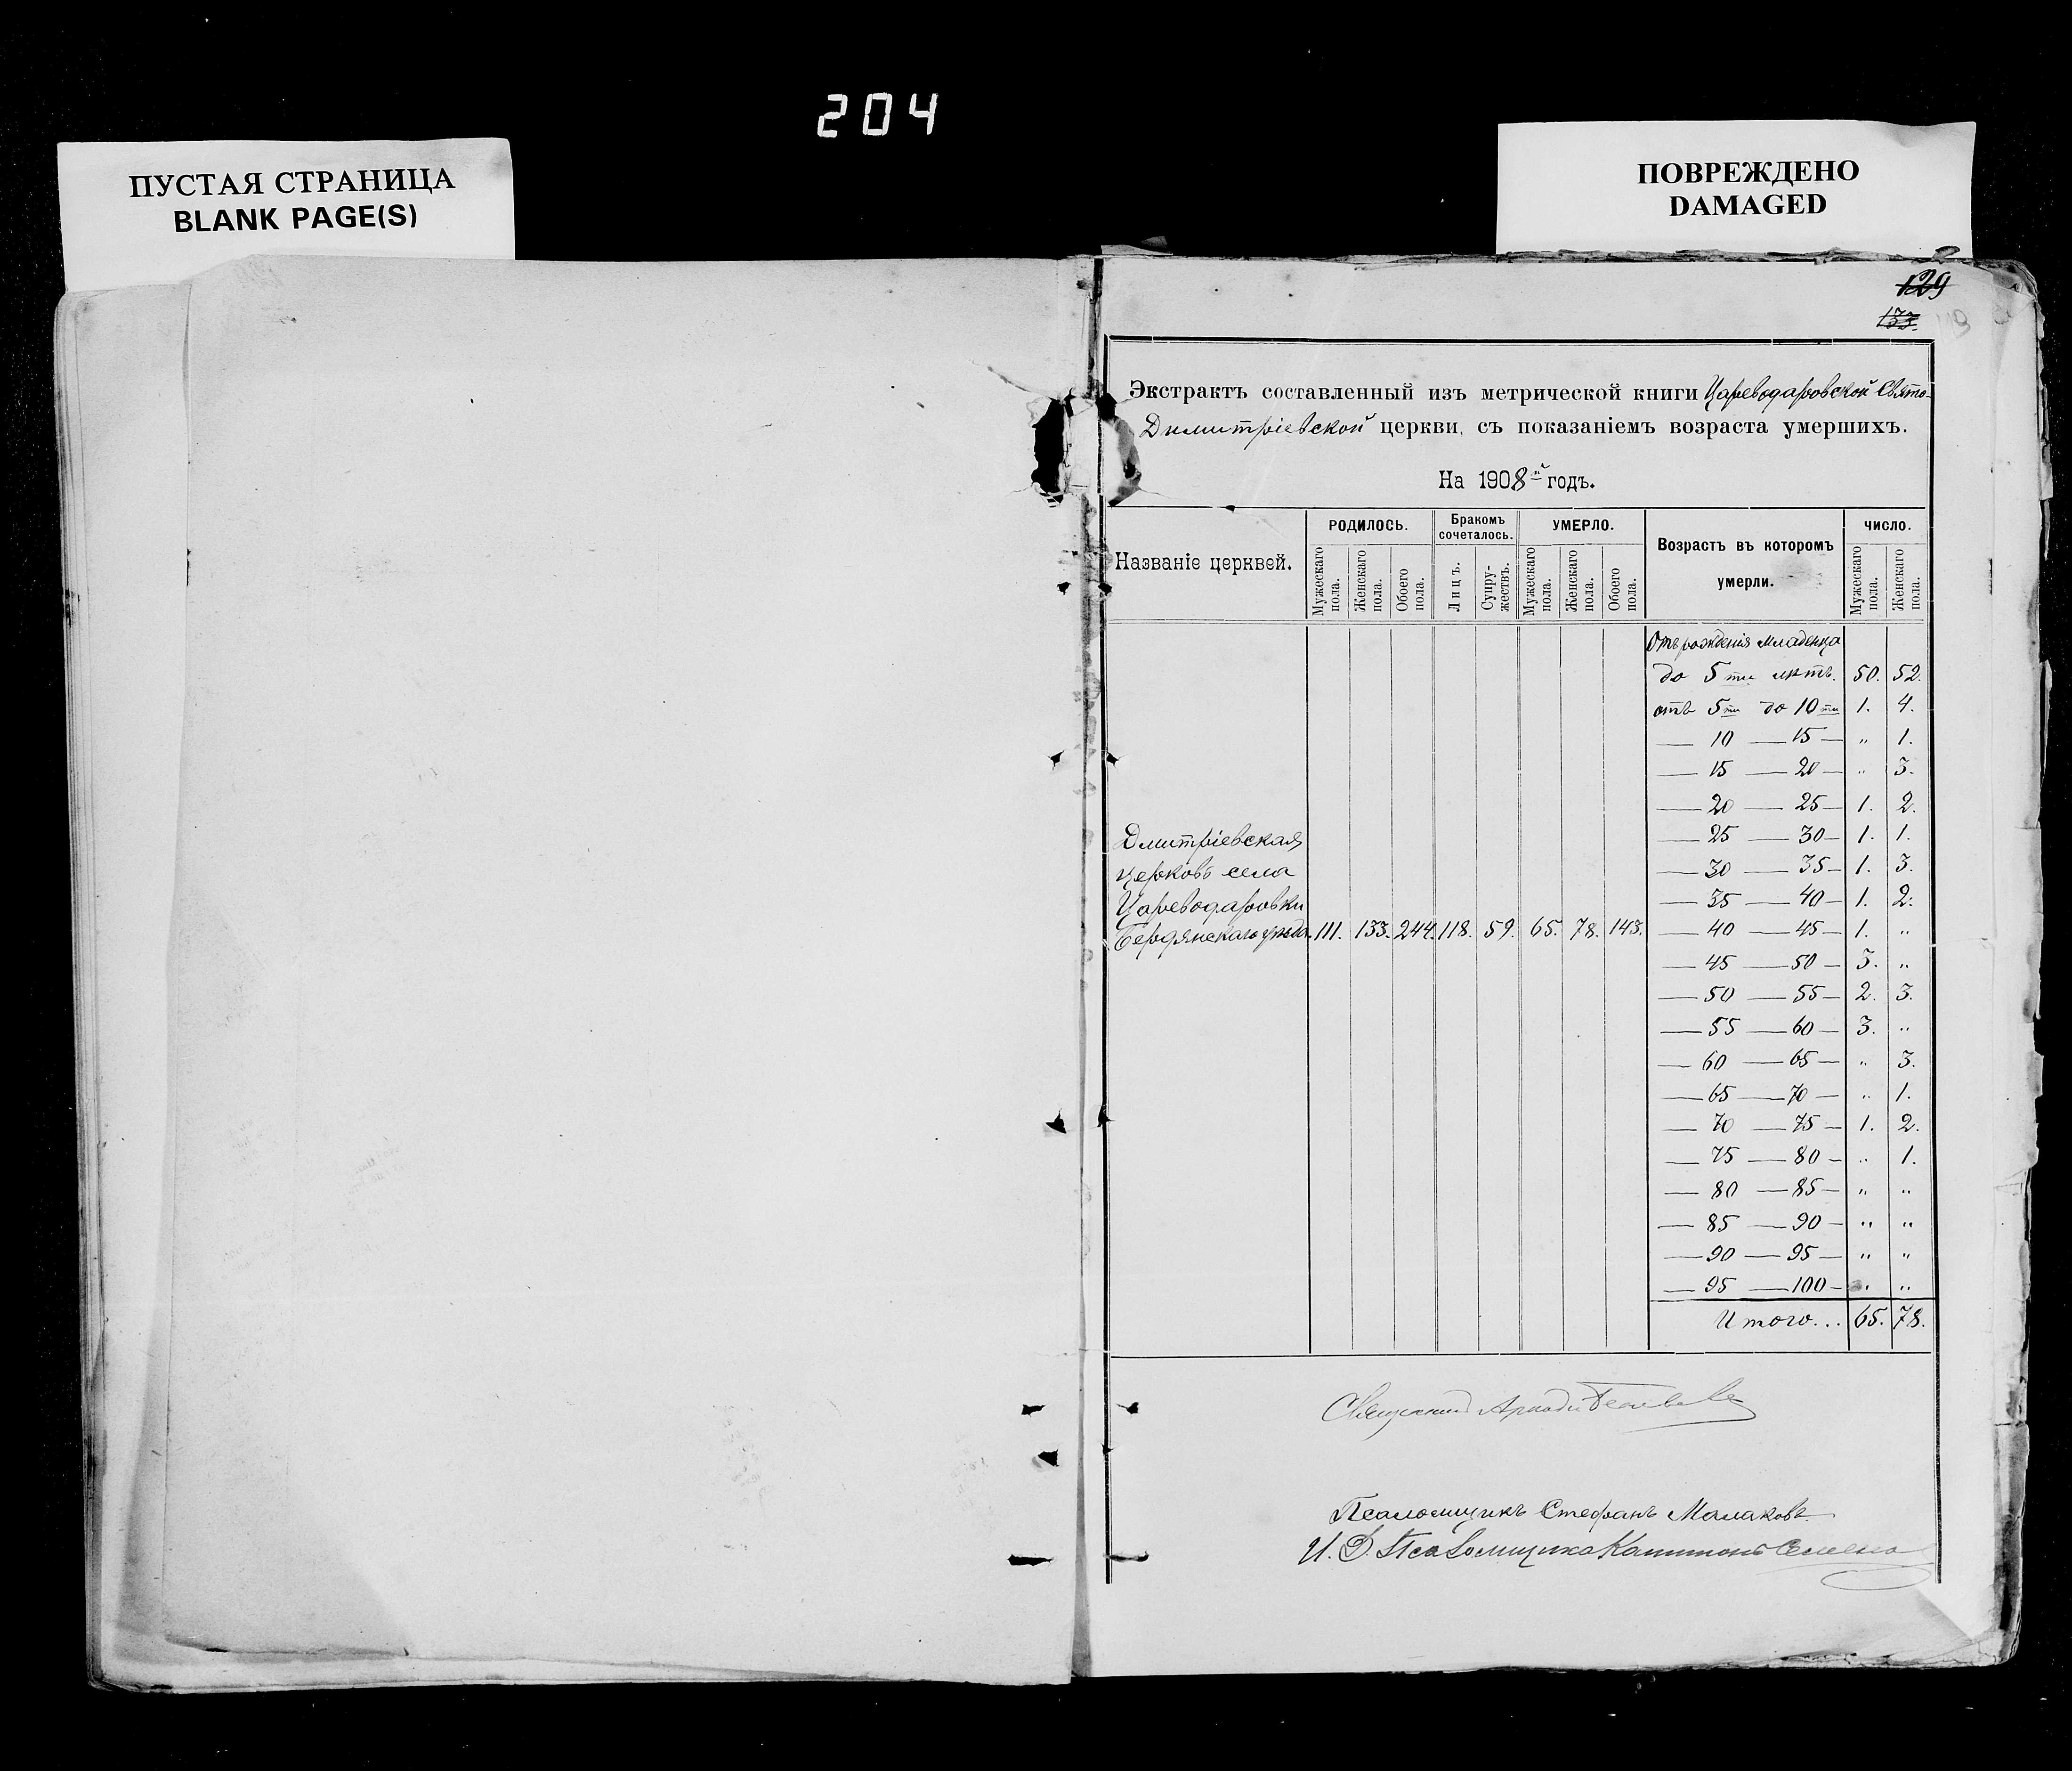 204
ПУСТАЯ СТРАНИЦА
BLANK PAGE(S)
ПОВРЕЖДЕНО
DAMAGED
129
133.
Экстрактъ составленный изъ метрической книги Цареводаровской Свято-
Димитріевской церкви, съ показаніемъ возраста умершихъ.
На 1908й годъ.
Названіе церквей.
РОДИЛОСЬ.
Мужескаго пола.
Женскаго пола.
Обоего пола.
Бракомъ сочеталось.
Лицъ.
Супру-жествъ.
УМЕРЛО.
Мужескаго пола.
Женскаго пола.
Обоего пола.
Возрастъ въ которомъ
умерли.
ЧИСЛО.
Мужескаго пола.
Женскаго пола.
Дмитріевская
церковь села
Цареводаровки
Бердянскаго уѣзда. 111. 133. 244. 118. 59. 65. 78. 143.
Отъ рожденія младенца
до 5ти лѣтъ. 50. 52.
отъ 5ти до 10ти 1. 4.
— 10 — 15 — " 1.
— 15 — 20 — " 3.
— 20 — 25 — 1. 2.
— 25 — 30 — 1. 1.
— 30 — 35 — 1. 3.
— 35 — 40 — 1. 2.
— 40 — 45 — 1. "
— 45 — 50 — 3. "
— 50 — 55 — 2. 3.
— 55 — 60 — 3. "
— 60 — 65 — " 3.
— 65 — 70 — " 1.
— 70 — 75 — 1. 2.
— 75 — 80 — " 1.
— 80 — 85 — " "
— 85 — 90 — " "
— 90 — 95 — " "
— 95 — 100 — " "
Итого... 65. 78.
Священникъ Аркадій
Псаломщикъ Стефанъ Малаковъ
И. Д. Псаломщика Капитонъ